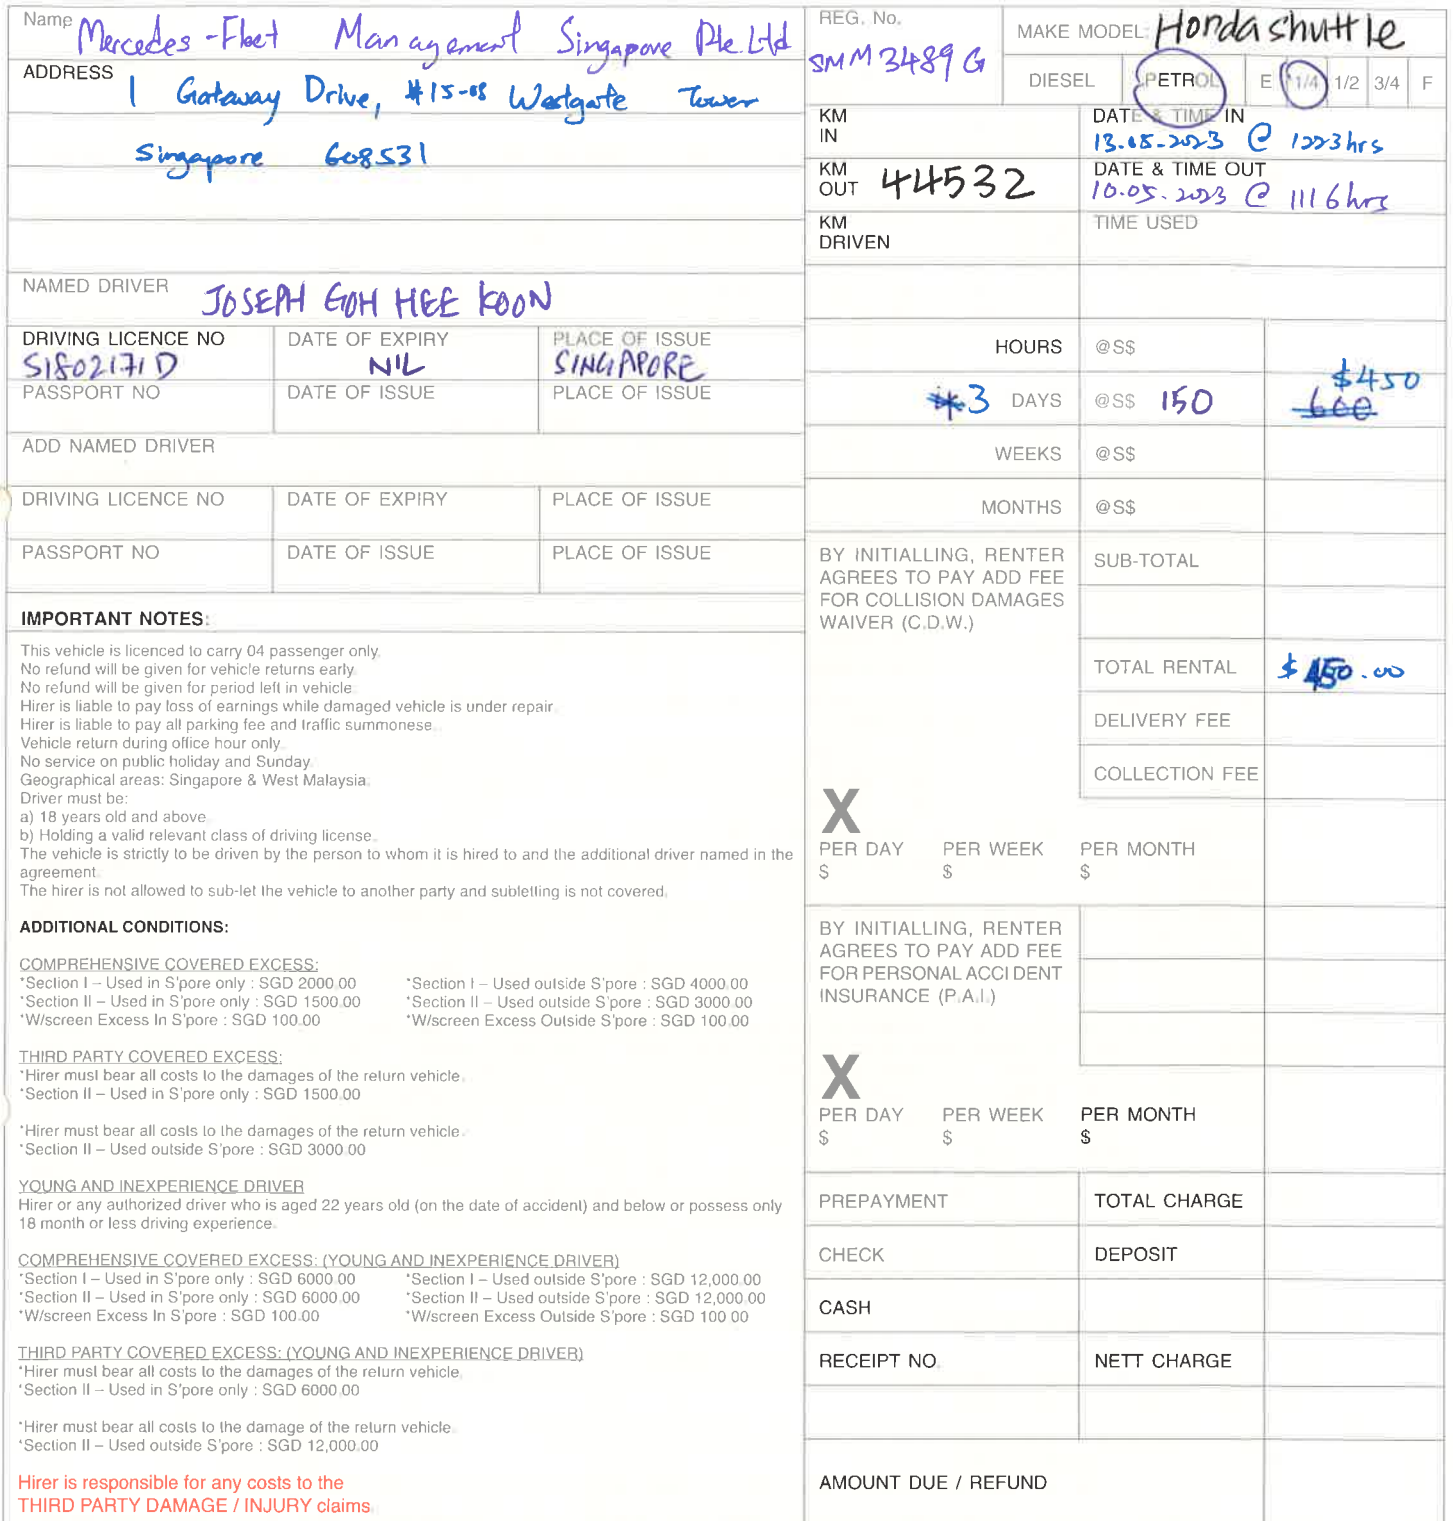 Name Mercedes-Fleet Management Singapore Pte Ltd
ADDRESS 1 Gateway Drive, #15-08 Westgate Tower
Singapore 608531
NAMED DRIVER JOSEPH GOH HEE KOON
DRIVING LICENCE NO DATE OF EXPIRY PLACE OF ISSUE
S1802171D NIL SINGAPORE
PASSPORT NO DATE OF ISSUE PLACE OF ISSUE
ADD NAMED DRIVER
DRIVING LICENCE NO DATE OF EXPIRY PLACE OF ISSUE
PASSPORT NO DATE OF ISSUE PLACE OF ISSUE
IMPORTANT NOTES:
This vehicle is licenced to carry 04 passenger only.
No refund will be given for vehicle returns early.
No refund will be given for period left in vehicle.
Hirer is liable to pay loss of earnings while damaged vehicle is under repair.
Hirer is liable to pay all parking fee and traffic summonese.
Vehicle return during office hour only.
No service on public holiday and Sunday.
Geographical areas: Singapore & West Malaysia.
Driver must be:
a) 18 years old and above.
b) Holding a valid relevant class of driving license.
The vehicle is strictly to be driven by the person to whom it is hired to and the additional driver named in the
agreement.
The hirer is not allowed to sub-let the vehicle to another party and subletting is not covered.
ADDITIONAL CONDITIONS:
COMPREHENSIVE COVERED EXCESS:
*Section I – Used in S'pore only : SGD 2000.00 *Section I – Used outside S'pore : SGD 4000.00
*Section II – Used in S'pore only : SGD 1500.00 *Section II – Used outside S'pore : SGD 3000.00
*W/screen Excess In S'pore : SGD 100.00 *W/screen Excess Outside S'pore : SGD 100.00
THIRD PARTY COVERED EXCESS:
*Hirer must bear all costs to the damages of the return vehicle.
*Section II – Used in S'pore only : SGD 1500.00
*Hirer must bear all costs to the damages of the return vehicle.
*Section II – Used outside S'pore : SGD 3000.00
YOUNG AND INEXPERIENCE DRIVER
Hirer or any authorized driver who is aged 22 years old (on the date of accident) and below or possess only
18 month or less driving experience.
COMPREHENSIVE COVERED EXCESS: (YOUNG AND INEXPERIENCE DRIVER)
*Section I – Used in S'pore only : SGD 6000.00 *Section I – Used outside S'pore : SGD 12,000.00
*Section II – Used in S'pore only : SGD 6000.00 *Section II – Used outside S'pore : SGD 12,000.00
*W/screen Excess In S'pore : SGD 100.00 *W/screen Excess Outside S'pore : SGD 100.00
THIRD PARTY COVERED EXCESS: (YOUNG AND INEXPERIENCE DRIVER)
*Hirer must bear all costs to the damages of the return vehicle.
*Section II – Used in S'pore only : SGD 6000.00
*Hirer must bear all costs to the damage of the return vehicle.
*Section II – Used outside S'pore : SGD 12,000.00
Hirer is responsible for any costs to the
THIRD PARTY DAMAGE / INJURY claims.
REG. No. MAKE MODEL: Honda shuttle
SMM3489G
DIESEL PETROL E 1/4 1/2 3/4 F
KM DATE & TIME IN
IN 13.05.2023 @ 1223hrs
KM DATE & TIME OUT
OUT 44532 10.05.2023 @ 1116hrs
KM TIME USED
DRIVEN
HOURS @S$
$450
3 DAYS @S$ 150 600
WEEKS @S$
MONTHS @S$
BY INITIALLING, RENTER
AGREES TO PAY ADD FEE
FOR COLLISION DAMAGES
WAIVER (C.D.W.)
SUB-TOTAL
TOTAL RENTAL $ 450.00
DELIVERY FEE
COLLECTION FEE
X
PER DAY PER WEEK PER MONTH
$ $ $
BY INITIALLING, RENTER
AGREES TO PAY ADD FEE
FOR PERSONAL ACCIDENT
INSURANCE (P.A.I.)
X
PER DAY PER WEEK PER MONTH
$ $ $
PREPAYMENT TOTAL CHARGE
CHECK DEPOSIT
CASH
RECEIPT NO. NETT CHARGE
AMOUNT DUE / REFUND